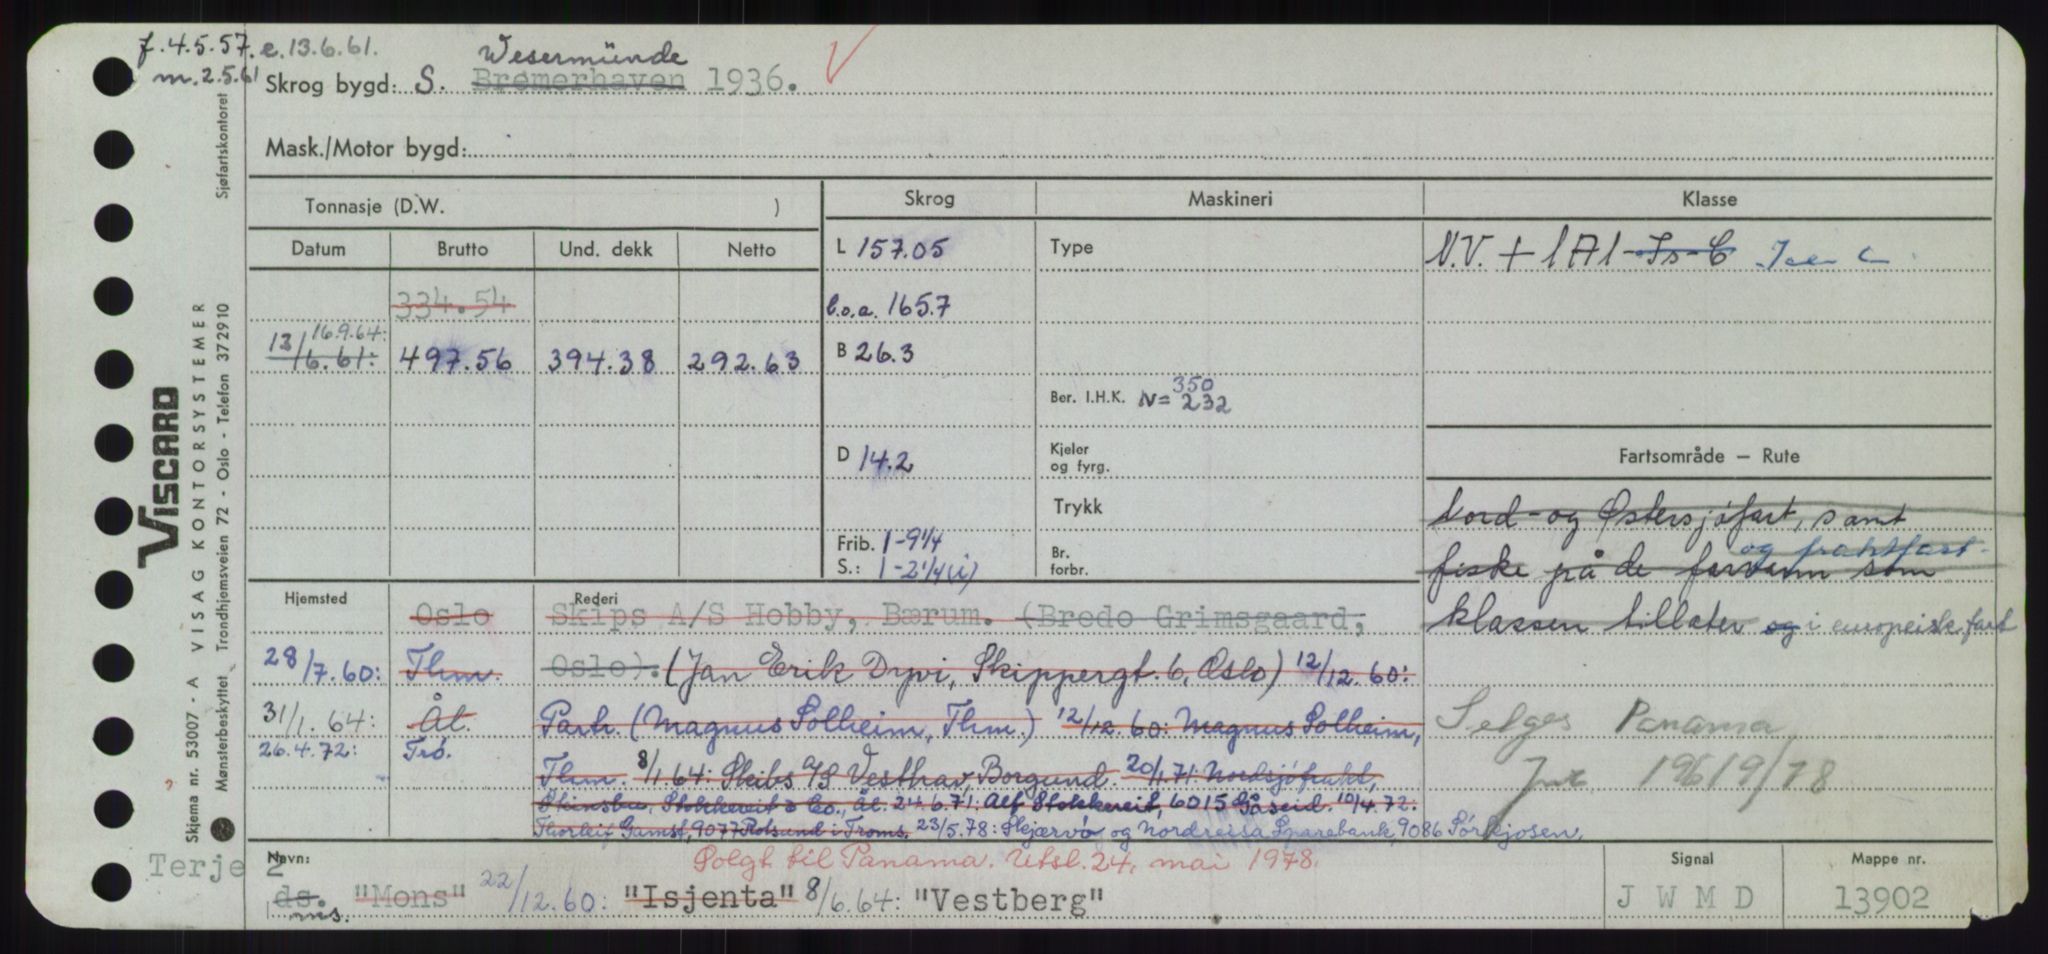 f. 4.5.57. e. 13.6.61.
m. 2.5.61
Wesermünde
Skrog bygd: S. Bremerhaven 1936.
Mask./Motor bygd:
Tonnasje (D.W. )
Skrog Maskineri Klasse
Datum Brutto Und. dekk Netto
L 157.05 Type
N.V. + 1A1 - Is - C
334.54
l.o.a. 165.7
16.9.64:
13/6.61: 497.56 394.38 292.63
B 26.3
350
Ber. I.H.K. N= 232
D 14.2
Kjeler og fyrg.
Trykk
Frib. 1-9¼
S.: 1-2¼(i)
Br. forbr.
Fartsområde — Rute
Nord- og Østersjøfart, samt
og fraktfart
fiske på de farvann som
klassen tillater og i europeisk fart
Selges Panama
196 19/78
Hjemsted Rederi
Oslo Skips A/S Hobby, Bærum. (Bredo Grimsgaard,
28/7.60: Thm. Oslo). (Jan Erik Dyvi, Skippergt. 6, Oslo) 12/12.60:
31/1.64: Ål. Partr. (Magnus Solheim, Thm.) 12/12.60: Magnus Solheim,
26.4.72: Trö. Thm. 8/1.64: Skibs A/S Vesthav, Borgund. 20/1.71: Nordsjöfrakt,
Stokkereit & Co., Ål. 24.6.71: Alf Stokkereit, 6015 Gåseid. 10/4.72:
Thorleif Gamst, 9077 Rotsund i Troms. 23/5.78: Skjærvøy og Nordreisa Sparebank, 9086 Sörkjosen.
Terje 2
Navn: Solgt til Panama. Utsl. 24. mai 1978.
ds. "Mons" 22/12.60: "Isjenta" 8/6.64: "Vestberg"
ms.
Signal
J W M D
Mappe nr.
13902
VISCARD
Skjema nr. 53007 - A VISAG KONTORSYSTEMER
Mønsterbeskyttet. Trondhjemsveien 72 - Oslo - Telefon 372910
Sjøfartskontoret